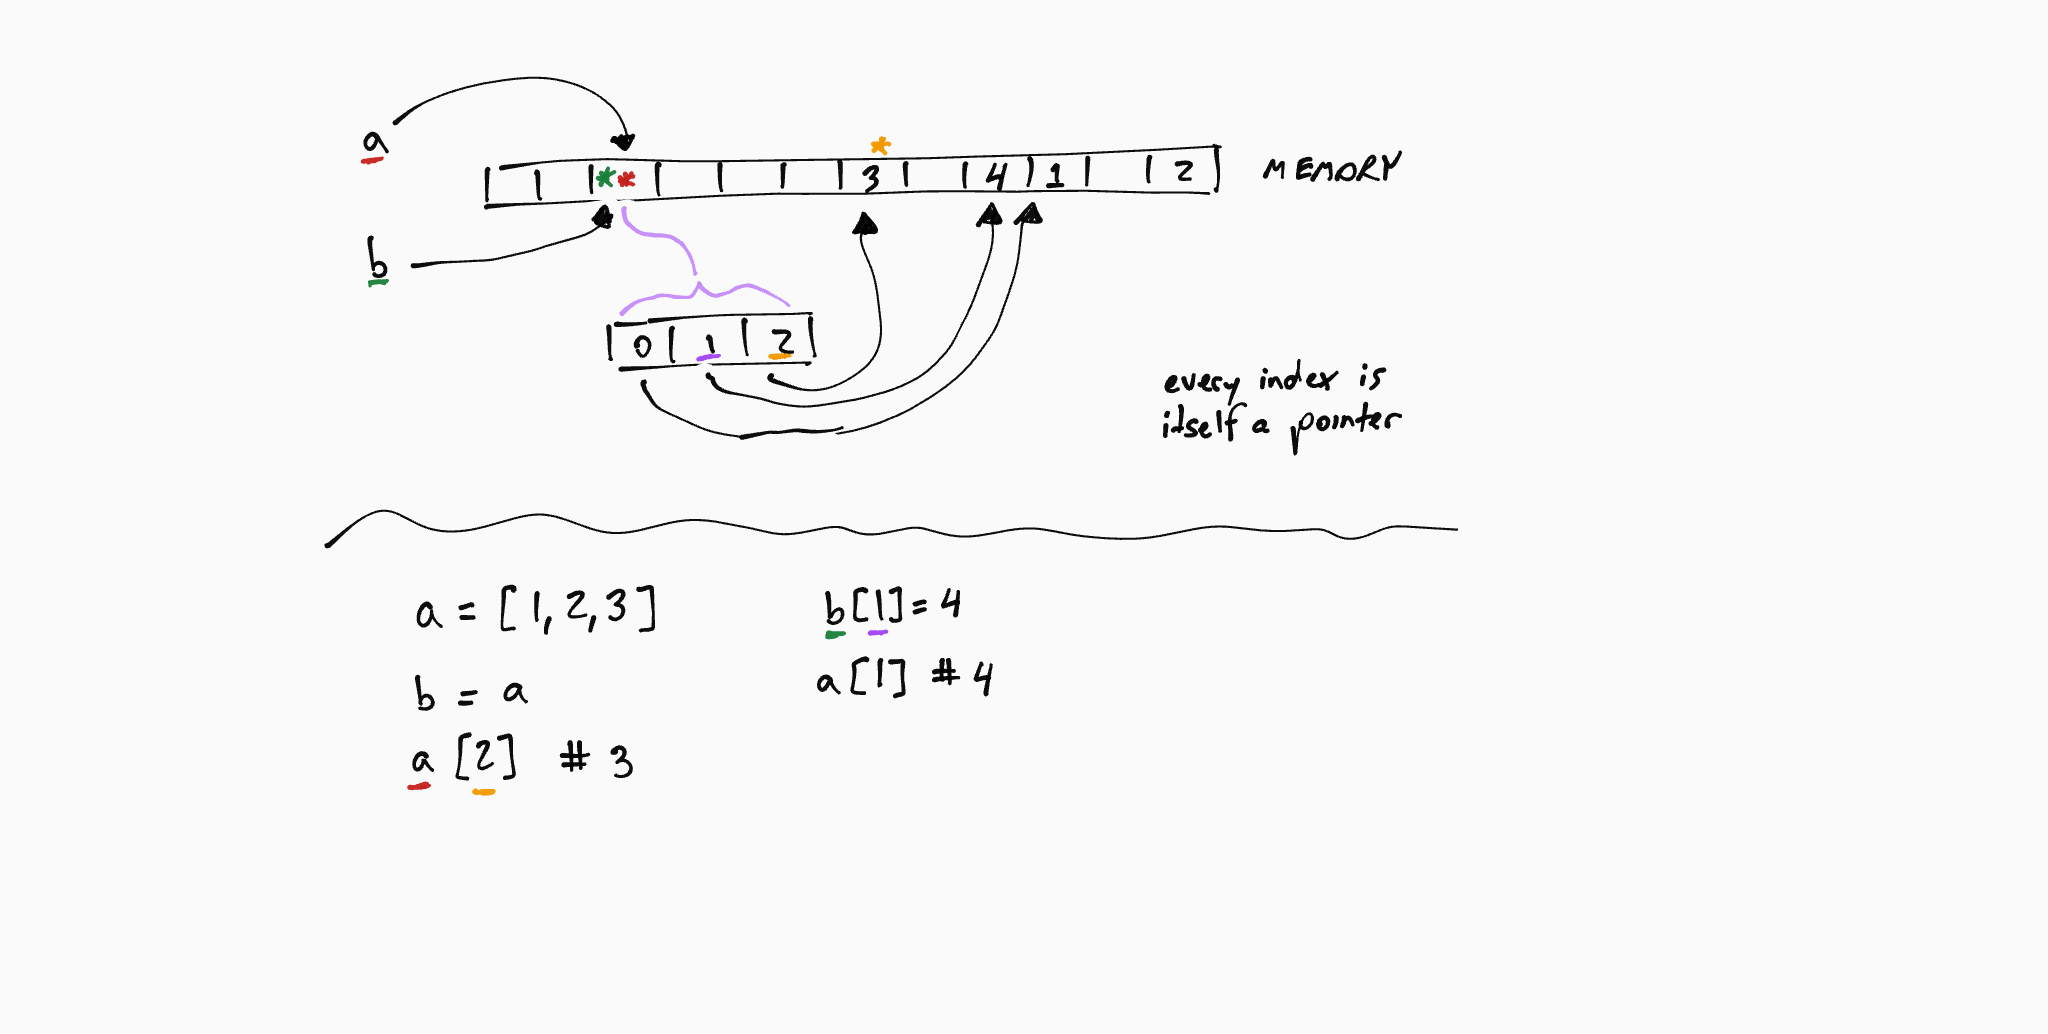 a
*
** 3 4 1 2 MEMORY
b
0 1 2
every index is
itself a pointer
a = [1,2,3]
b = a
a [2] # 3
b[1] = 4
a[1] # 4